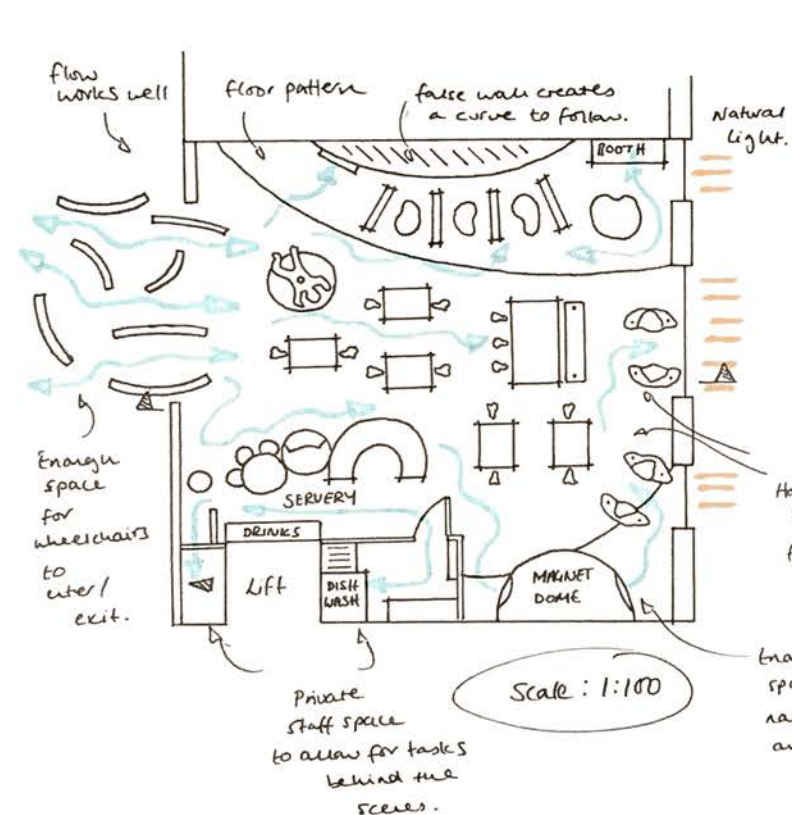 flow
works well
floor pattern
false wall creates
a curve to follow.
Natural
Light.
BOOTH
Enough
space
for
wheelchairs
to
enter/
exit.
SERVERY
DRINKS
Lift
DISH
WASH
MAGNET
DOME
Private
staff space
to allow for tasks
behind the
scenes.
Scale : 1:100